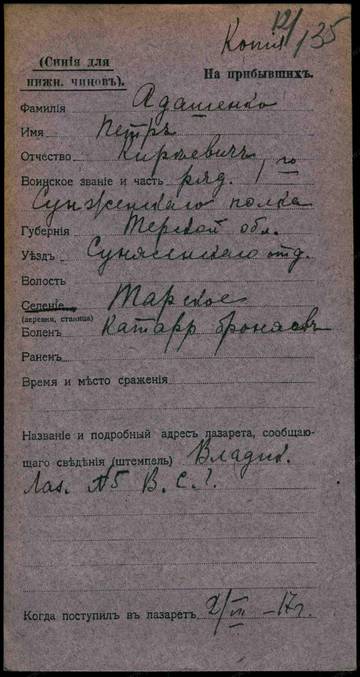 Копия 12/135
(Синія для
нижн. чиновъ).
На прибывшихъ.
Фамилія Адаменко
Имя Петръ
Отчество
Воинское званіе и часть ряд. 1го
Сунженскаго полка
Губернія Терской обл.
Уѣздъ Сунженскаго отд.
Волость
Селеніе Тарское
(деревня, станица)
Боленъ Катарр бронховъ
Раненъ
Время и мѣсто сраженія
Названіе и подробный адресъ лазарета, сообщаю-
щаго свѣдѣнія (штемпель) Владик.
Лаз. №5 В. С. Г.
Когда поступилъ въ лазаретъ 17г.